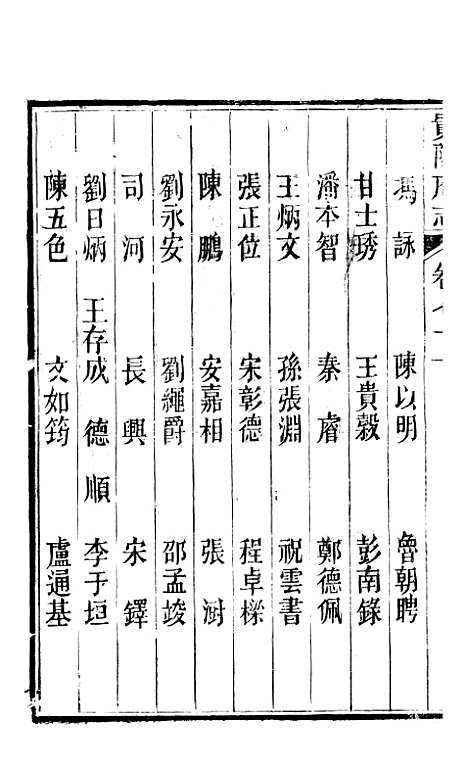 貴陽府志 卷七十一
馮詠 陳以明 魯朝聘
甘士琇 王貴穀 彭南錄
潘本智 秦睿 鄭德佩
王炳文 孫張淵 祝雲書
張正位 宋彰德 程卓樑
陳鵬 安嘉相 張澍
劉永安 劉繩爵 邵孟竣
司河 長興 宋鐸
劉日炳 王存成 德順 李于垣
陳五色 文如筠 盧通基